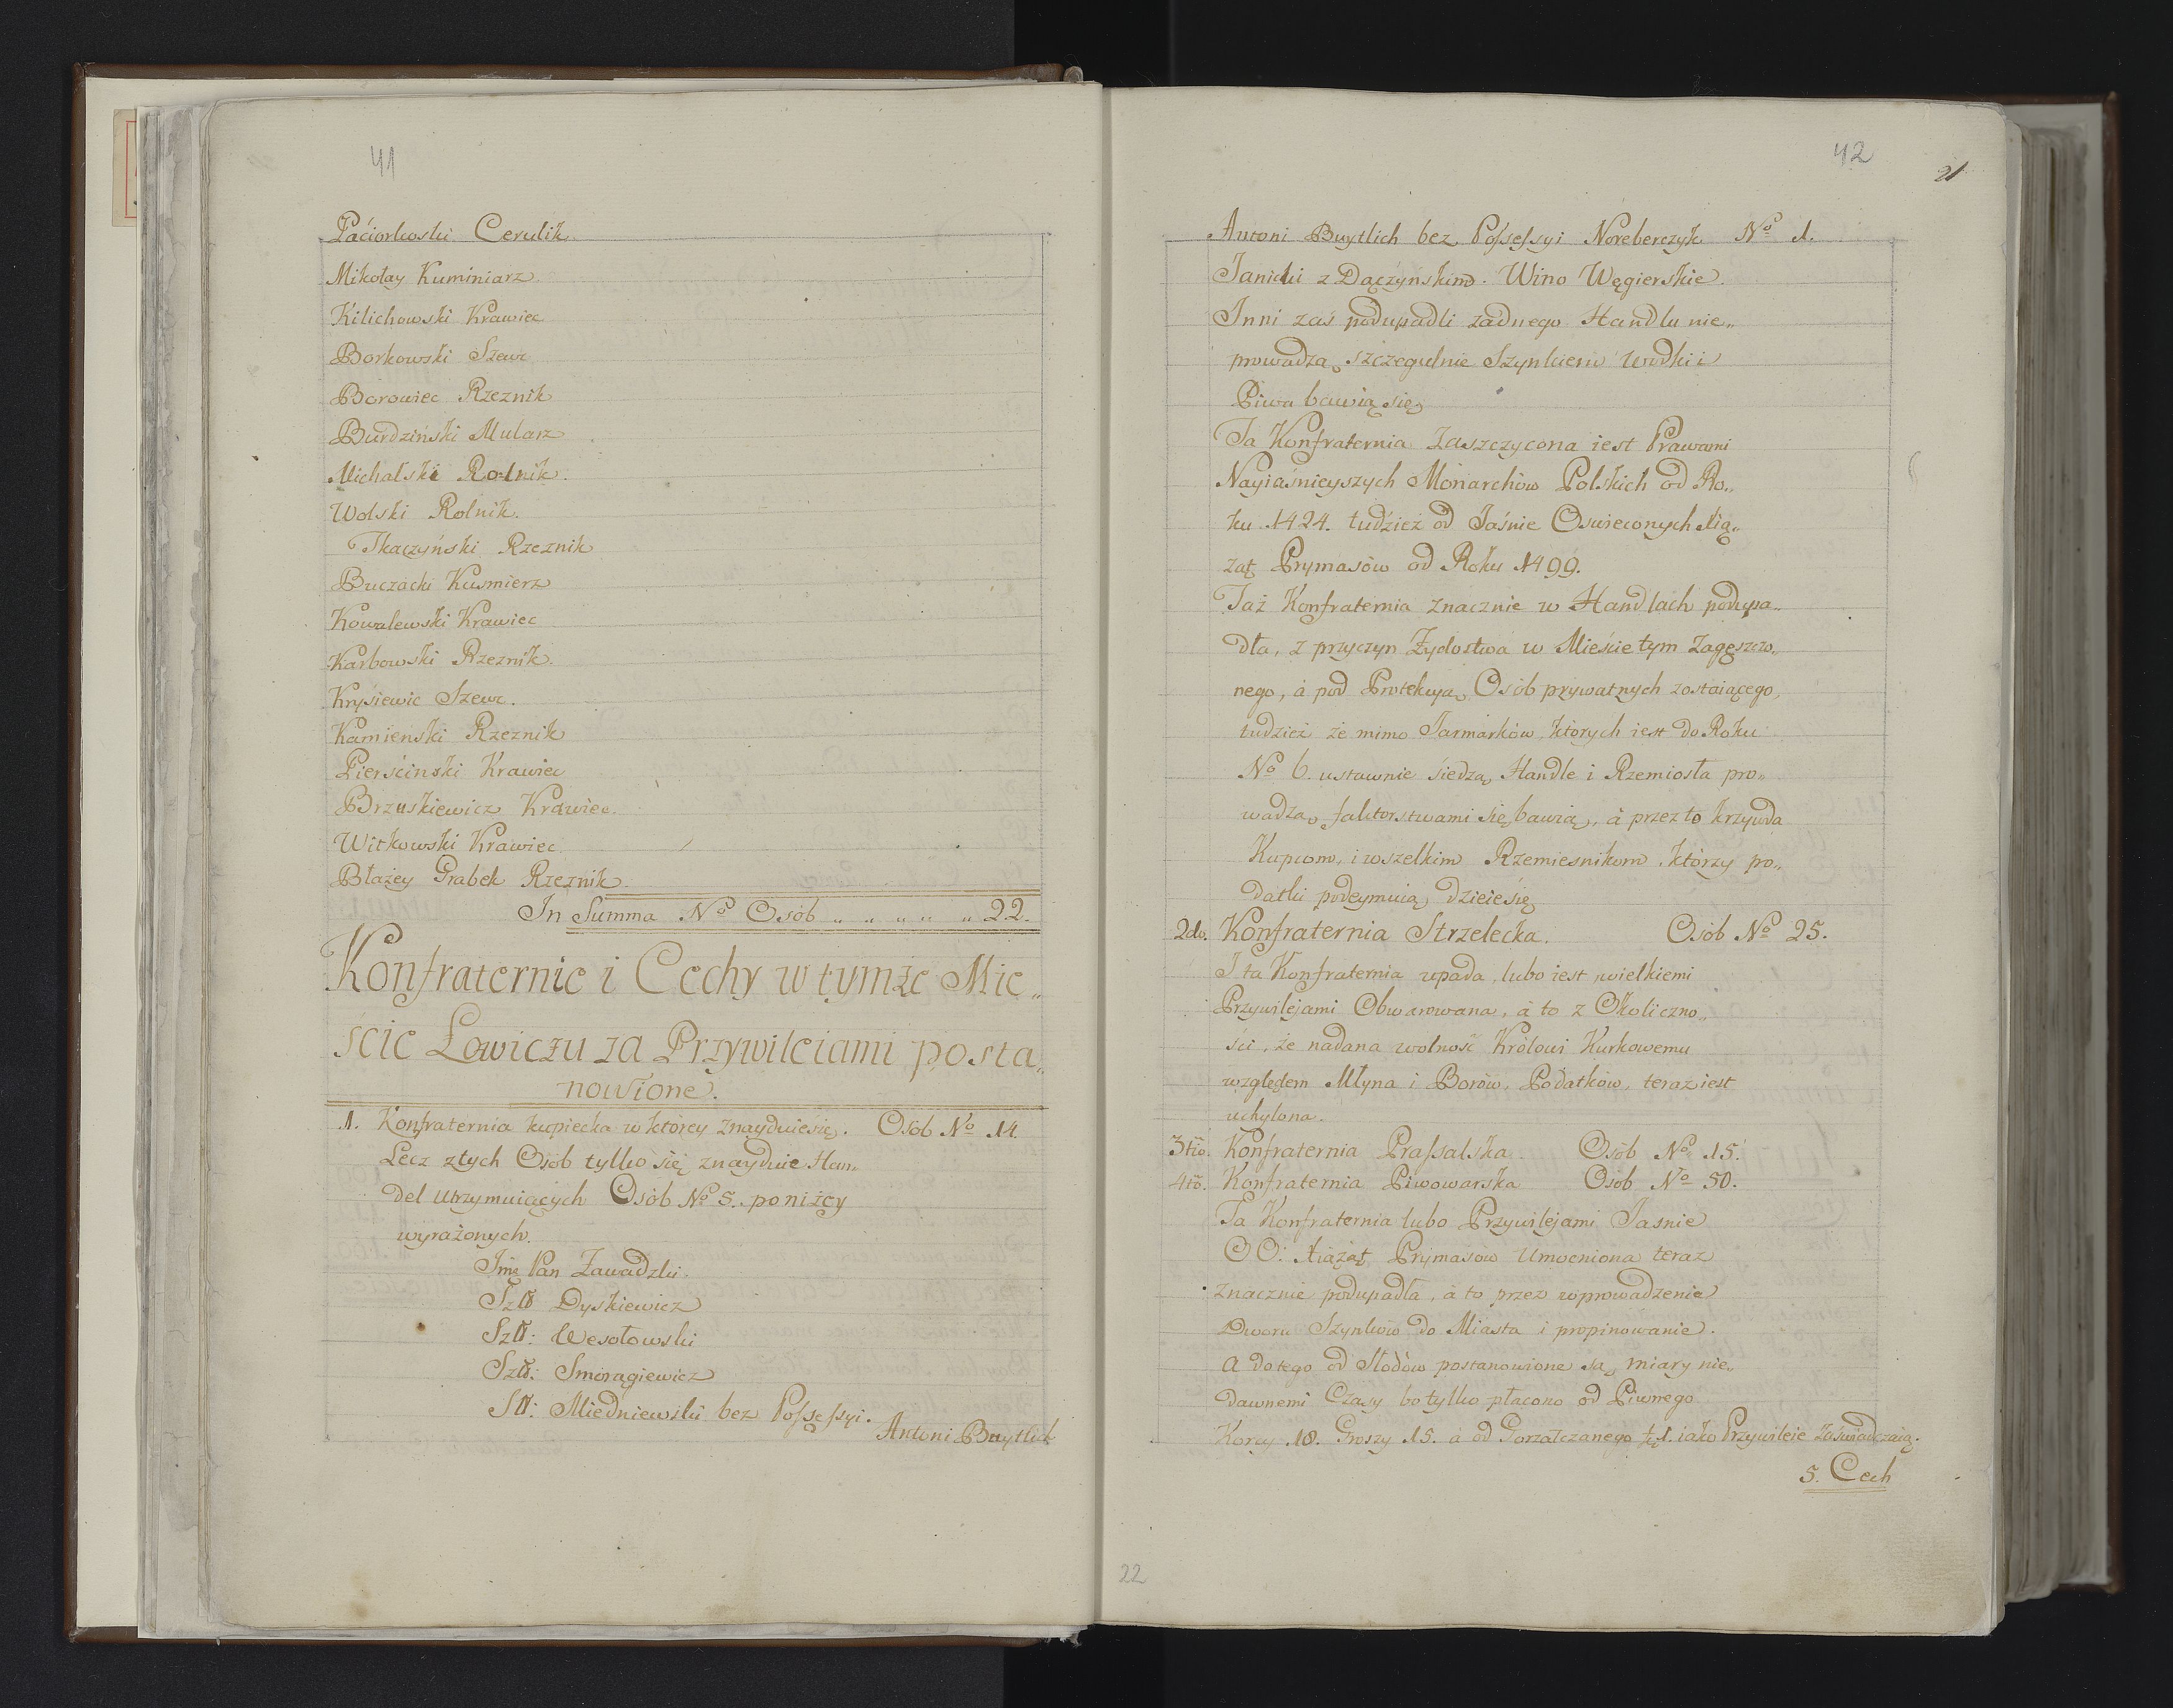 41
Paciorkoski Cerulik.
Mikołay Kuminiarz.
Kilichowski Krawiec
Borkowski Szewc
Borowiec Rzeznik
Burdziński Mularz
Michalski Rolnik.
Wolski Rolnik.
Tkaczyński Rzeznik
Buczacki Kusmierz
Kowalewski Krawiec
Karbowski Rzeznik.
Krysiewic Szewc.
Kamienski Rzeznik
Pierścinski Krawiec
Brzuskiewicz Krawiec.
Witkowski Krawiec.
Błażey Grabek Rzeznik.
In Summa No Osób „ „ „ „ „ 22.
Konfraternie i Cechy w tymże Mie„
ście Łowiczu za Przywileiami posta„
nowione.
1. Konfraternia kupiecka w którey znayduie się. Osób No 14.
Lecz z tych Osób tylko się znayduie Han„
del utrzymuiących Osób No 5. poniżey
wyrażonych.
Imć Pan Zawadzki.
Dyskiewicz
Wesołowski
Smorągiewicz
Miedniewski bez Possessyi.
Antoni Buytlich
42
21
Antoni Buytlich bez Possessyi Noreberczyk No 1.
Janicki z Dączyńskim. Wino Węgierskie.
Inni zaś podupadli żadnego Handlu nie„
prowadzą, szczegulnie Szynkiem Wodki i
Piwa bawią się
Ta Konfraternia Zaszczycona iest Prawami
Nayiaśnieyszych Monarchów Polskich od Ro„
ku 1424. tudzież od Jaśnie Oswieconych Xią„
żąt Prymasów od Roku 1499.
Taż Konfraternia znacznie w Handlach podupa„
dła, z przyczyn Żydostwa w Mieście tym Zagęszczo„
nego, á pod Protekcyą Osób prywatnych zostaiącego,
tudzież że mimo Jarmarków, których iest do Roku
No 6. ustawnie siedzą Handle i Rzemiosła pro„
wadzą, faktorstwami się bawią, á przez to krzywda
Kupcom, i wszelkim Rzemiesnikom, którzy po„
datki podeymuią dzieie się
2do. Konfraternia Strzelecka. Osób No 25.
I ta Konfraternia upada, lubo iest wielkiemi
Przywilejami Obwarowana, á to z Okoliczno„
ści, że nadana wolność Królowi Kurkowemu
względem Młyna i Borów, Podatków, teraz iest
uchylona.
3tio. Konfraternia Prassalska Osób No 15.
4to. Konfraternia Piwowarska Osób No 50.
Ta Konfraternia lubo Przywilejami Jasnie
OO: Xiążąt Prymasów Umocniona teraz
znacznie podupadła, á to przez wprowadzenie
Dworu Szynków do Miasta i propinowanie.
A do tego od Słodów postanowione są miary nie„
dawnemi Czasy bo tylko płacono od Piwnego
Korcy 18. Groszy 15. á od Gorzałczanego 1. iako Przywileie zaświadczaią.
5. Cech
22